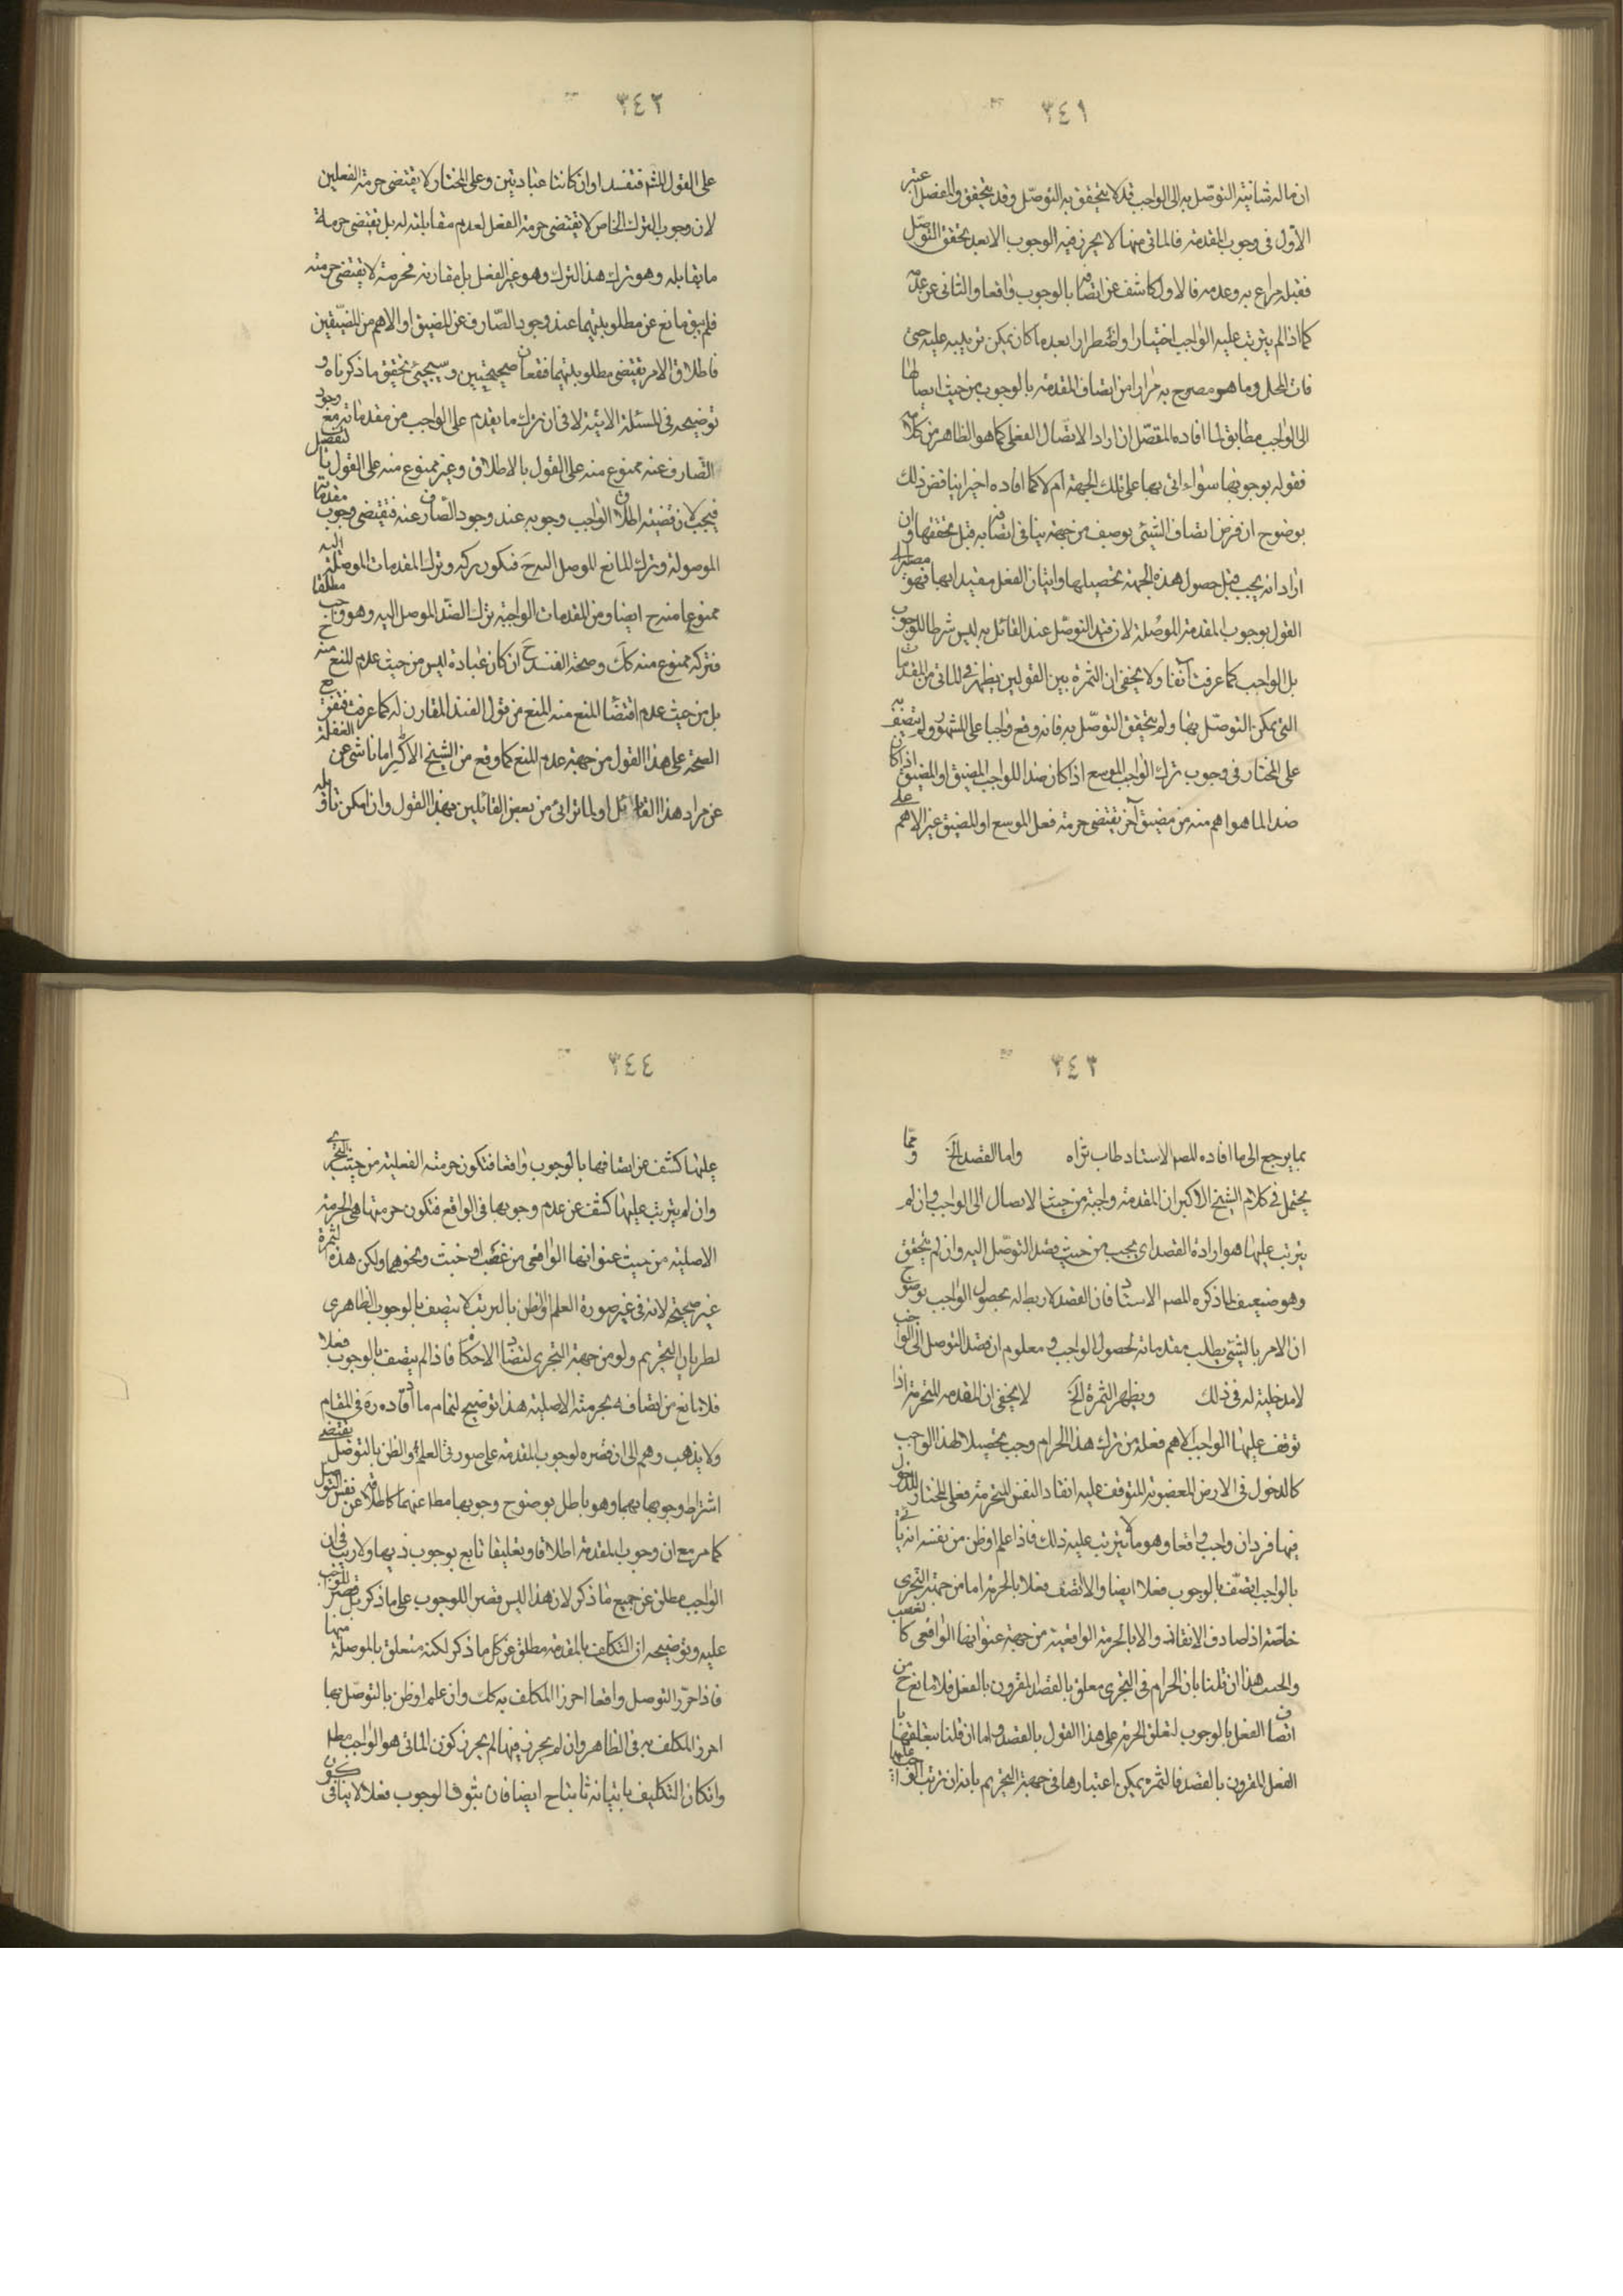 ٣٤١
ان ماله شانية التوصّل به الى الواجب قد لا يتحقق به التوصّل وقد يتحقق والمفصل اعتبر
الأول فى وجوب المقدمة فالماتى منها لا يحرز فيه الوجوب الا بعد تحقق التوصّل
فقبله مراع به وعدمه فالاول كاشف عن اتصافه بالوجوب واقعا والثانى عن عدمه
كما اذا لم يترتب عليه الواجب اختيارا او اضطرارا بعد ما كان يمكن ترتيبه عليه حتى
فات المحل وما هو مصرح به مرارا من اتصاف المقدمة بالوجوب من حيث ايصالها
الى الواجب مطابق لما افاده المفصّل ان اراد الاتصال الفعلى كما هو الظاهر من كلامه
فقوله بوجوبها سواء اتى بها على تلك الجهة ام لا كما افاده اخيرا يناقض ذلك
بوضوح ان فرض اتصاف الشيئ بوصف من جهة ينافى اتصافه به قبل تحققها وان
اراد انه يجب قبل حصول هذه الجهة تحصيلها واتيان الفعل مقيدا بها فهو
القول بوجوب المقدمة الموصلة لان قيد التوصّل عند القائل به ليس شرطا للوجوب
بل الواجب كما عرفت آنفا ولا يخفى ان الثمرة بين القولين يظهر فى الماتى من المقدمات
التى يمكن التوصّل بها ولم يتحقق التوصّل به فانه وقع واجبا على المشهور ولم يتصف به
على المختار فى وجوب ترك الواجب الموسع اذا كان ضدا للواجب المضيق او المضيق اذا كان
ضدا لما هو اهم منه من مضيق آخر تقتضى حرمة فعل الموسع او المضيق غير الاهم على
٣٤٢
على القول المشهـ فتفسد او ان كانتا عبادتين وعلى المختار لا يقتضى حرمة الفعلين
لان وجوب الترك الخاص لا يقتضى حرمة الفعل لعدم مقابلته له بل تقتضى حرمة
ما يقابله وهو ترك هذا الترك وهو غير الفعل بل مقارنه فحرمته لا تقتضى حرمته
فلم يبق مانع عن مطلوبيتهما عند وجود الصّارف عن المضيق او الاهم من المضيّقين
فاطلاق الامر يقتضى مطلوبيتهما فتقعان صحيحتين وسيجيئ تحقيق ما ذكرناه و
توضيحه فى المسئلة الاتية لا فى ان ترك ما يقدم على الواجب من مقدماته مع وجود
الصّارف عنه ممنوع منه على القول بالاطلاق وغير ممنوع منه على القول بالتفصيل
فيجب لان قضية اطلاق الواجب وجوبه عند وجود الصّارف عنه فتقتضى وجوب مقدماته
الموصولة وترك المانع للموصل اليه ح فتكون تركه وترك المقدمات الموصلة اليه
ممنوعا منه ح ايضا ومن المقدمات الواجبة ترك الضّد الموصل اليه وهو واجب مطلقا
فتركه ممنوع منه كك وصحة الضد ح ان كان عبادة ليس من حيث عدم المنع منه ح
بل من حيث عدم اقتضا المنع منه المنع من قول الضد المقارن له كما عرفت فتفريع
الصحة على هذا القول من جهة عدم المنع كما وقع من الشيخ الاكبر اما ناشى عن الغفلة
عن مراد هذا القائل او لما ترائ من بعض القائلين بهذا القول وان امكن تاويله
٣٤٣
بما يرجع الى ما افاده المصـ الاستاد طاب ثراه واما القصد الخ ومما
يحتمل فى كلام الشيخ الاكبر ان المقدمة واجبة من حيث الايصال الى الواجب وان لم
يترتب عليها هو ارادة القصد اى يجب من حيث قصد التوصّل اليه وان لم يتحقق
وهو ضعيف لما ذكره المصـ الاستاد فان القصد لا ربط له بحصول الواجب بوضوح
ان الامر بالشيئ يطلب مقدماته لحصول الواجب ومعلوم ان قصد التوصل الى الواجب
لا مدخلية له فى ذلك ويظهر الثمرة الخ لا يخفى ان المقدمة المحرمة اذا
توقف عليها الواجب الاهم فعله من ترك هذا الحرام وجب تحصيلا لهذا الواجب
كالدخول فى الارض المغصوبة المتوقف عليه انقاذ النفس المحرمة فعلى المختار للدخول
فيها فردان واجب واقعا وهو ما يترتب عليه ذلك فاذا علم او ظن من نفسه انه ياتى
بالواجب اتصّف بالوجوب فعلا ايضا والا اتصف فعلا بالحرمة اما من جهة التجرى
خاصّة اذا صادف الانقاذ والا بالحرمة الواقعية من جهة عنوانها الواقعى كالغصب
والحسب هذا ان قلنا بان الحرام فى التجرى معلق بالقصد المقرون بالفعل فلا مانع ح من
اتصاف الفعل بالوجوب لتعلق الحرمة على هذا القول بالقصد واما ان قلنا بتعلقها با
الفعل المقرون بالقصد فالثمرة يمكن اعتبارها فى جهة التحريم بانه ان ترتب الواجب عليها
٣٤٤
عليها كشف عن اتصافها بالوجوب واقعا فتكون حرمته الفعلية من حيث التجرى
وان لم يترتب عليها كشف عن عدم وجوبها فى الواقع فتكون حرمتها هى الحرمة
الاصلية من حيث عنوانها الواقعى من غصب او خبث ونحوهما ولكن هذه الثمرة
غير صحيحة لانه فى غير صورة العلم او الظن بالترتب لا يتصف بالوجوب الظاهرى
لطريان التحريم ولو من جهة التجرى لتضاد الاحكام فاذا لم يتصف بالوجوب فعلا
فلا مانع من اتصافه بحرمته الاصلية هذا توضيح لتمام ما افاده ره فى المقام
ولا يذهب وهم الى ان قصره لوجوب المقدمة على صورتى العلم او الظن بالتوصّل يقتضى
اشتراط وجوبها بهما وهو باطل بوضوح وجوبها مطـ عنهما كاطلاقه عن نفس التوصل
كما مر مع ان وجوب المقدمة اطلاقا وتعليقا تابع بوجوب ذيها ولا ريب فى ان
الواجب مطلق عن جميع ما ذكر لان هذا ليس قصرا للوجوب على ما ذكر بل قصر للوجوب
عليه وتوضيحه ان التكليف بالمقدمة مطلق عن كل ما ذكر لكنه متعلق بالموصلة منها
فاذا حرّز التوصل واقعا احرز المكلف به كك وان علم او ظن بالتوصّل بها
احرز المكلف به فى الظاهر وان لم يحرز فيها لم يحرز كون الماتى هو الواجب مطـ
وان كان التكليف باتيانه ثابتا ح ايضا فان ثبوت الوجوب فعلا لا ينافى كون